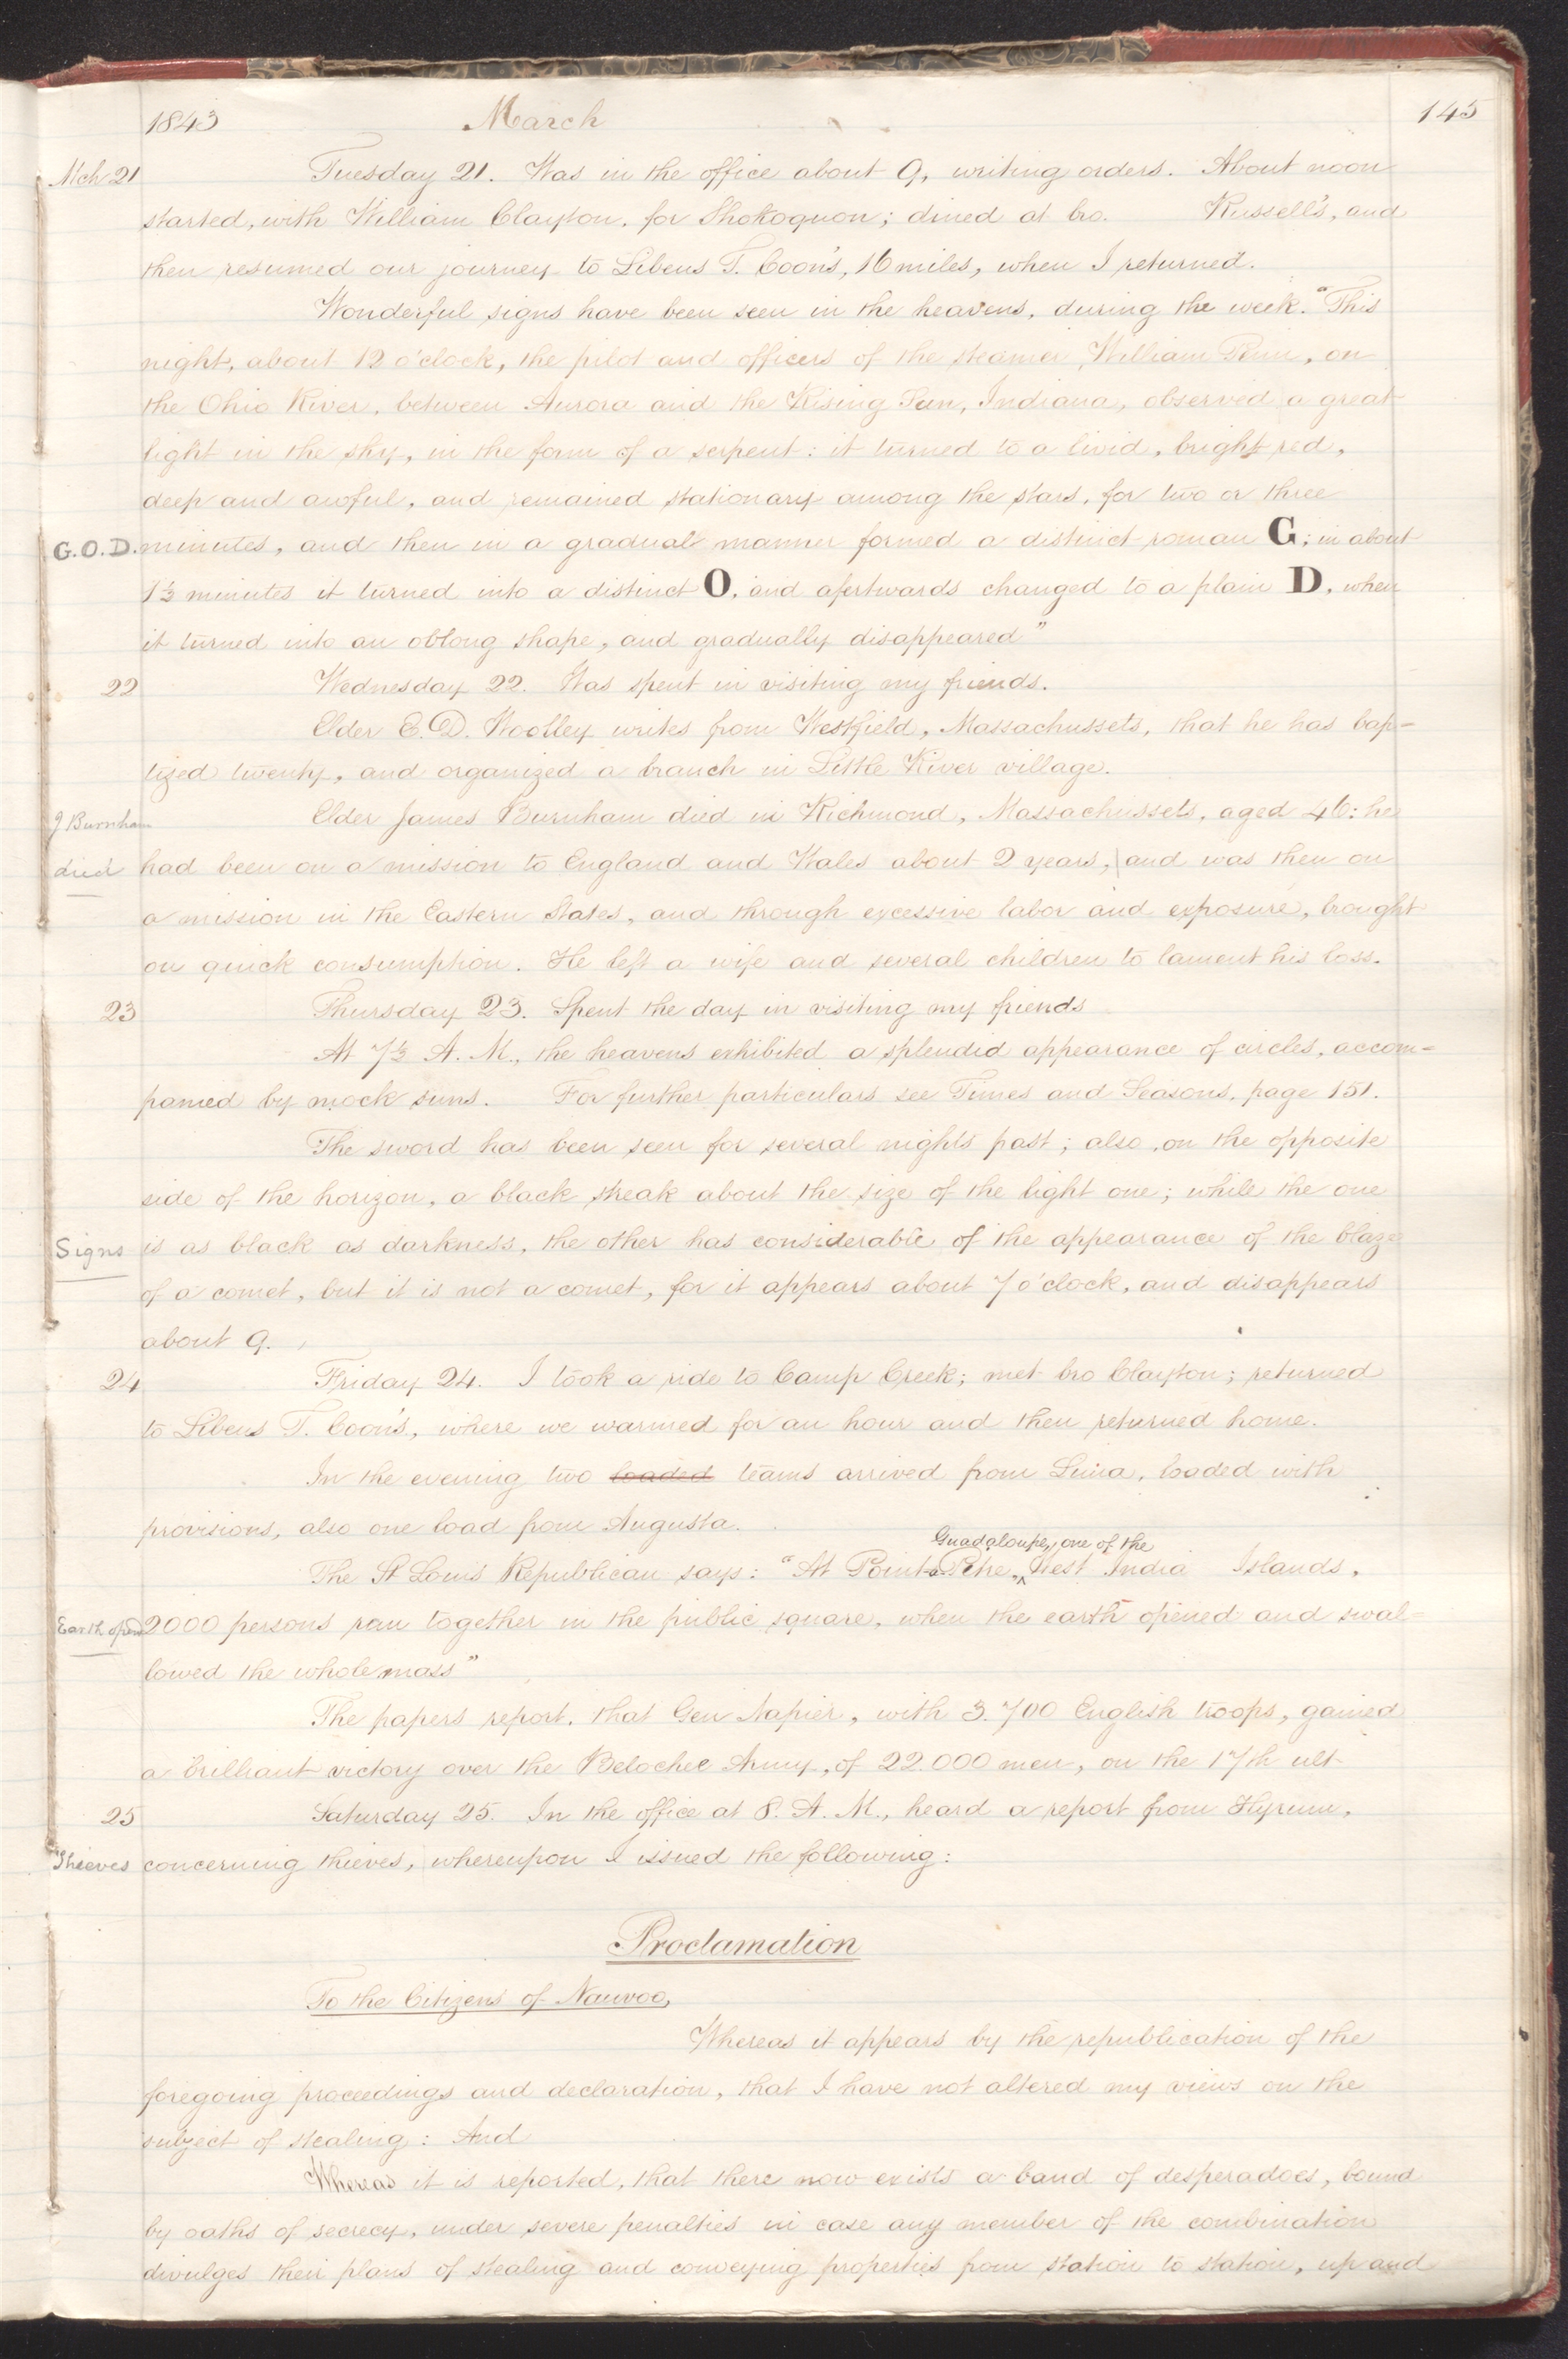 1843 March 145
Mch 21 Tuesday 21. Was in the office about 9, writing orders. About noon
started, with William Clayton, for Shokoquon; dined at bro. Russell's, and
then resumed our journey to Libeus T. Coon's, 16 miles, when I returned.
Wonderful signs have been seen in the heavens, during the week. "This
night, about 12 o'clock, the pilot and officers of the steamer, William Penn, on
the Ohio River, between Aurora and the Rising Sun, Indiana, observed a great
light in the sky, in the form of a serpent: it turned to a livid, bright red,
deep and awful, and remained stationary among the stars, for two or three
G.O.D. minutes, and then in a gradual manner formed a distinct roman G; in about
1½ minutes it turned into a distinct O, and afertwards changed to a plain D, when
it turned into an oblong shape, and gradually disappeared"
22 Wednesday 22. Was spent in visiting my friends.
Elder E. D. Woolley writes from Westfield, Massachussets, that he has bap=
tized twenty, and organized a branch in Little River village.
J Burnham Elder James Burnham died in Richmond, Massachussets, aged 46: he
died had been on a mission to England and Wales about 2 years, and was then on
a mission in the Eastern States, and through excessive labor and exposure, brought
on quick consumption. He left a wife and several children to lament his loss.
23 Thursday 23. Spent the day in visiting my friends
At 7½ A. M., the heavens exhibited a splendid appearance of circles, accom=
panied by mock suns. For further particulars see Times and Seasons, page 151.
The sword has been seen for several nights past; also, on the opposite
side of the horizon, a black streak about the size of the light one; while the one
Signs is as black as darkness, the other has considerable of the appearance of the blaze
of a comet, but it is not a comet, for it appears about 7 o'clock, and disappears
about 9.
24 Friday 24. I took a ride to Camp Creek; met bro Clayton; returned
to Libeus T. Coon's, where we warmed for an hour and then returned home.
In the evening two loaded teams arrived from Lima, loaded with
provisions, also one load from Augusta.
Guadaloupe, one of the
The St Louis Republican says: "At Point-a-Petre, ^ West India Islands,
Earth opened 2000 persons ran together in the public square, when the earth opened and swal=
lowed the whole mass"
The papers report, that Gen Napier, with 3.700 English troops, gained
a brilliant victory over the Belochee Army, of 22.000 men, on the 17th ult
25 Saturday 25. In the office at 8. A. M., heard a report from Hyrum,
Thieves concerning thieves, whereupon I issued the following:
Proclamation
To the Citizens of Nauvoo,
Whereas it appears by the republication of the
foregoing proceedings and declaration, that I have not altered my views on the
subject of stealing: And
Whereas it is reported, that there now exists a band of desperadoes, bound
by oaths of secrecy, under severe penalties in case any member of the combination
divulges their plans of stealing and conveying properties from station to station, up and